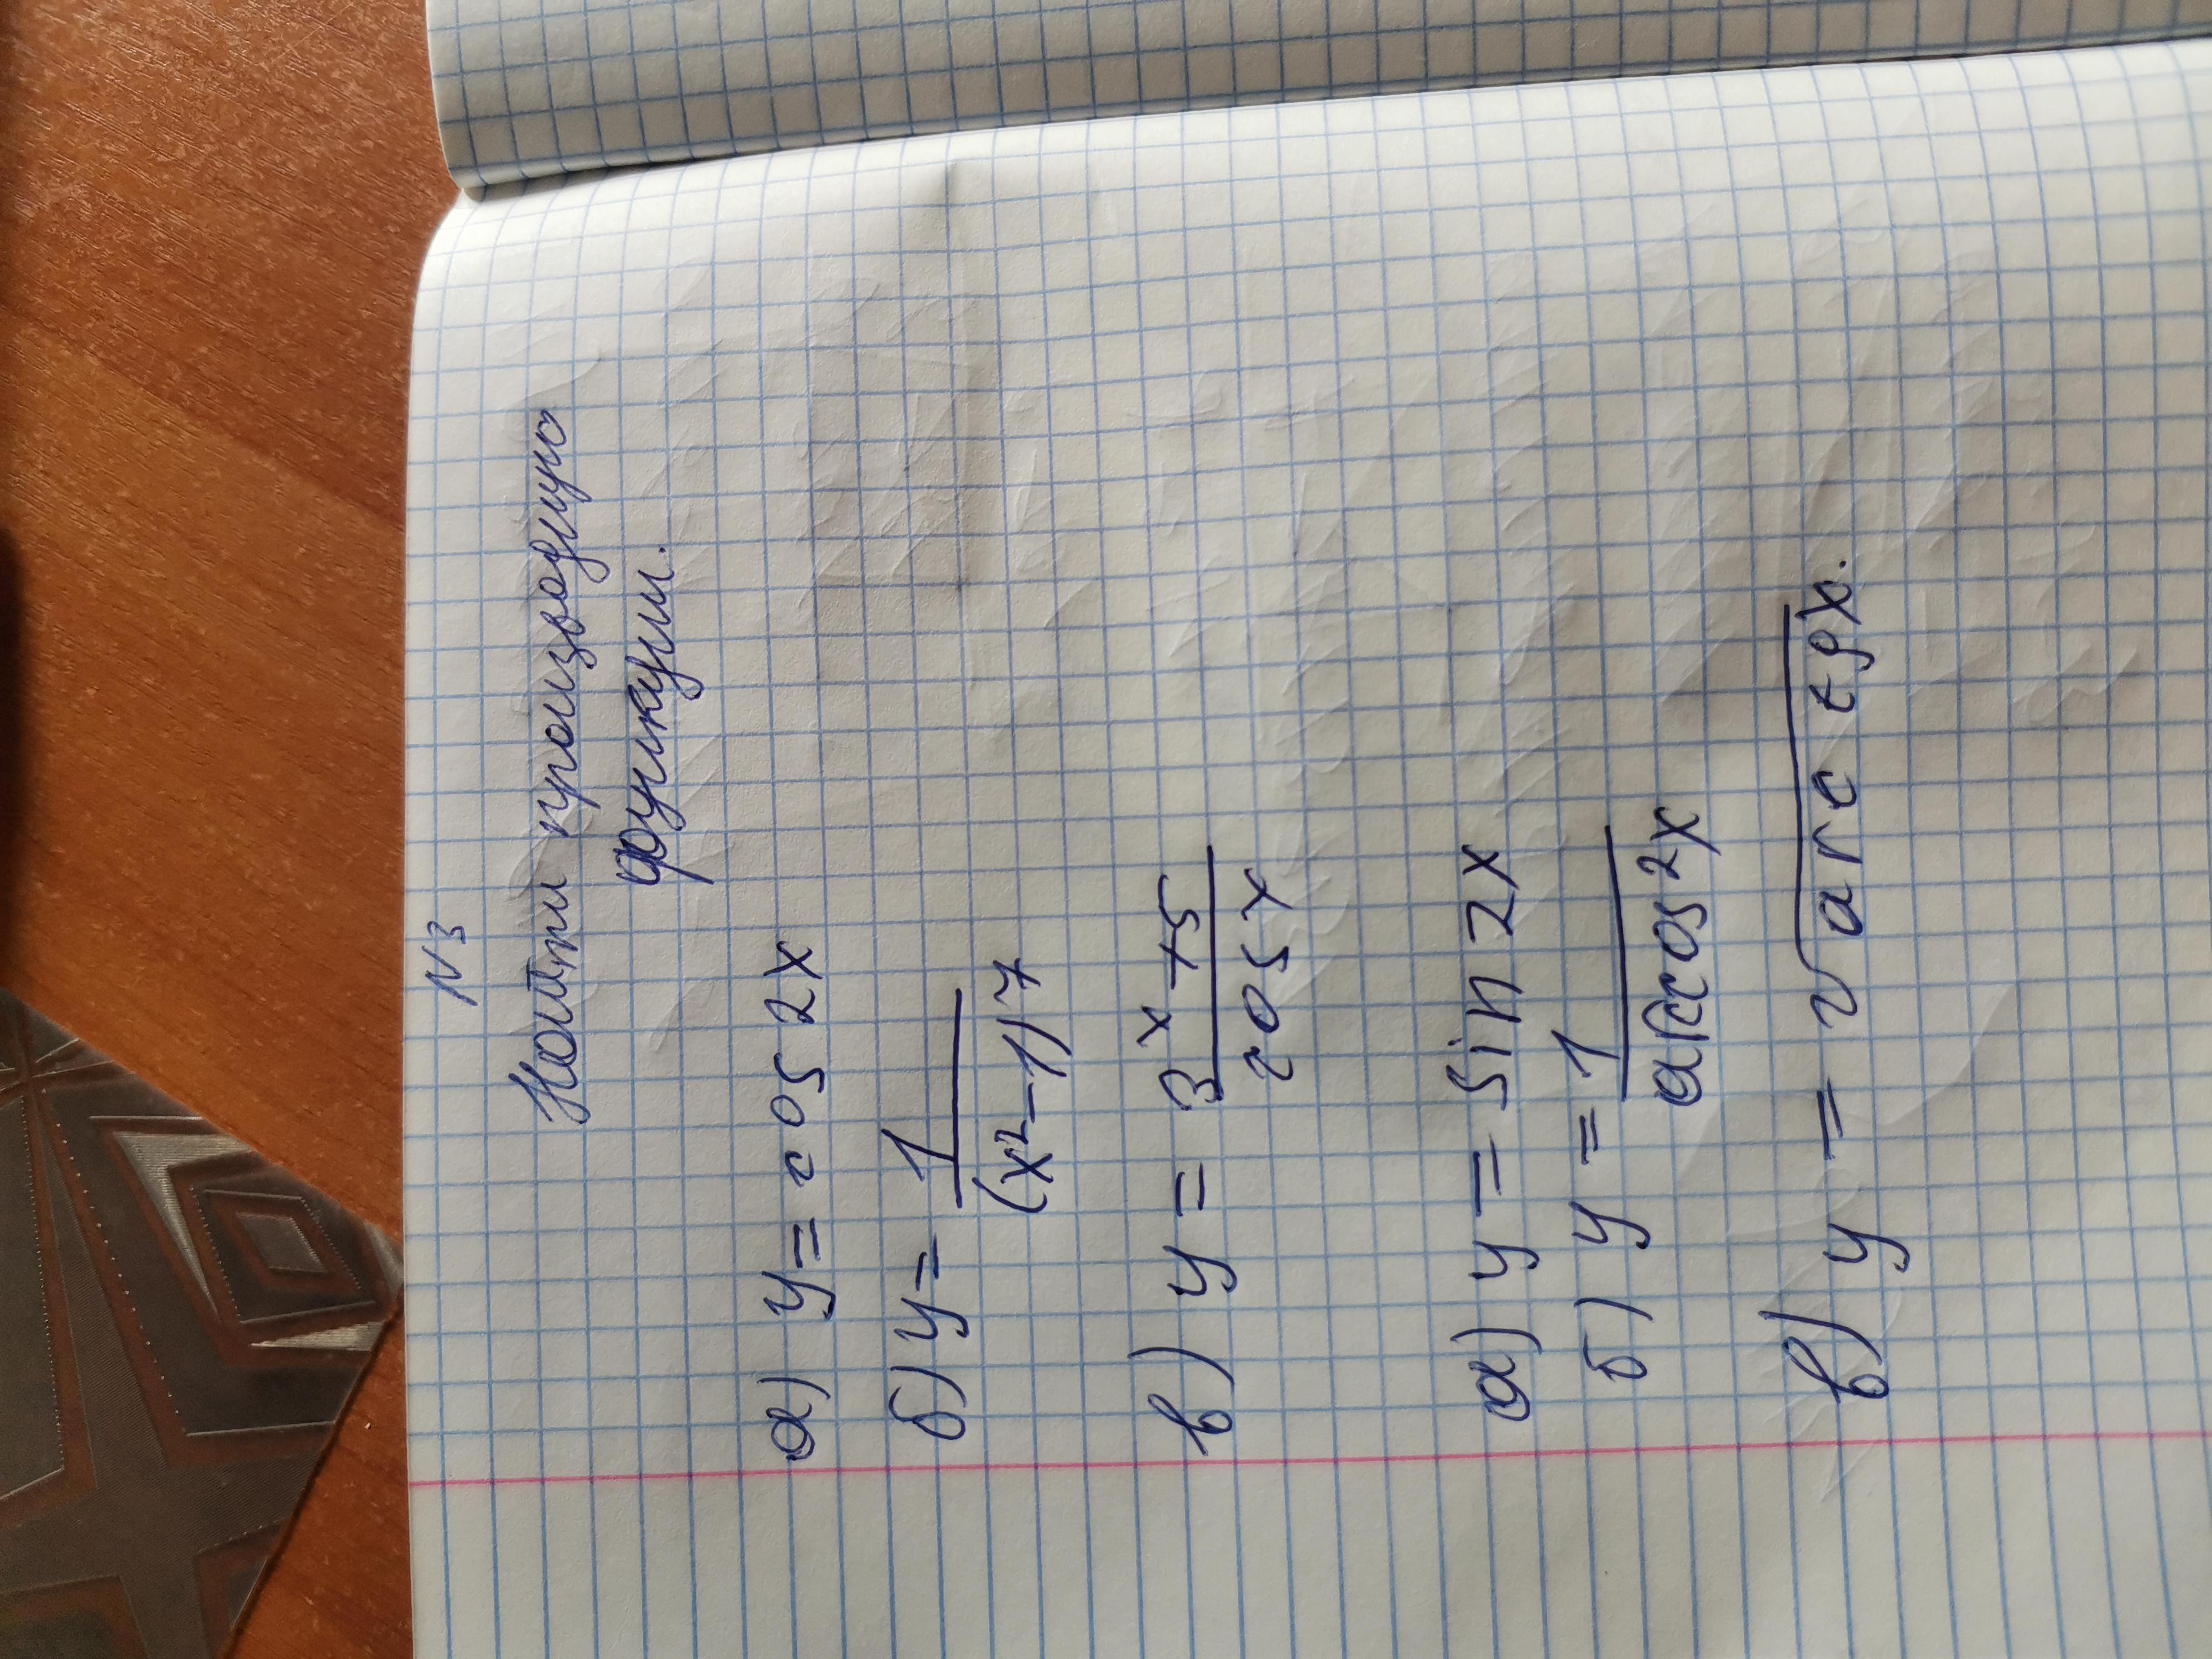 N3
Найти производную
функции.
а) y = cos 2x
б) y = 1/(x²-1)7
в) y = 3ˣ+5/cos x
а) y = sin 2x
б) y = 1/arccos²x
в) y = √arc tgx.